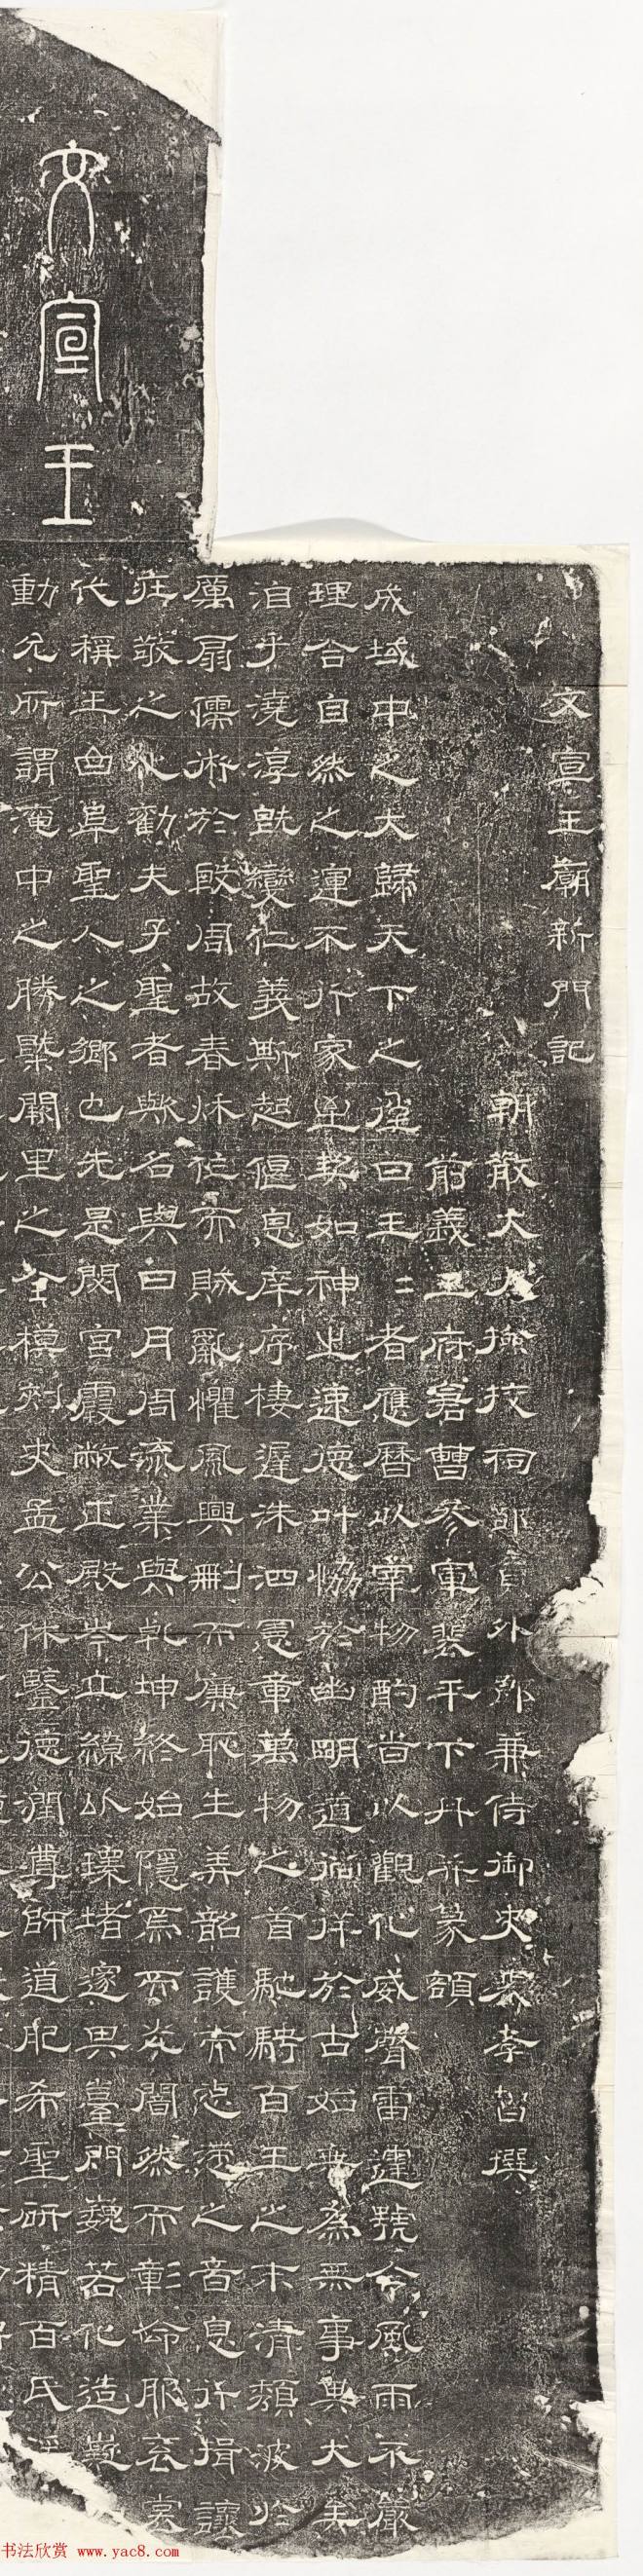 文宣王
文宣王廟新門記
朝散大夫撿挍祠部員外郎兼侍御史裴孝智撰
前義王府倉曹參軍裴平下丹并篆額
成域中之大歸天下之 曰王二者應曆以宰物酌 以觀化威聲雷 號令風雨不嚴
理合自然之運不行家 契如神速德叶恊於幽明道 祥於古始 為無事 大美
洎乎澆淳旣變仁義斯起偃息庠序棲遲洙泗憲章萬物之首馳騁百王之末清頹波於
厲扇儒術於 周故春秋作而賊亂懼風興刪而廉耻生弄韶護 之音息行揖讓
莊敬之 勸夫子聖者歟名與日月周流業與乾坤終始隱焉而 闇然而彰命服袞
代稱王曲阜聖人之鄉也先是閟宮霞敞正殿岑立繚以環堵邃 臺門巍若化造
動允所謂 中之勝槩闕里之 模刺史孟公休鑒德潤尊師道 希聖研精百氏
书法欣赏 www.yac8.com